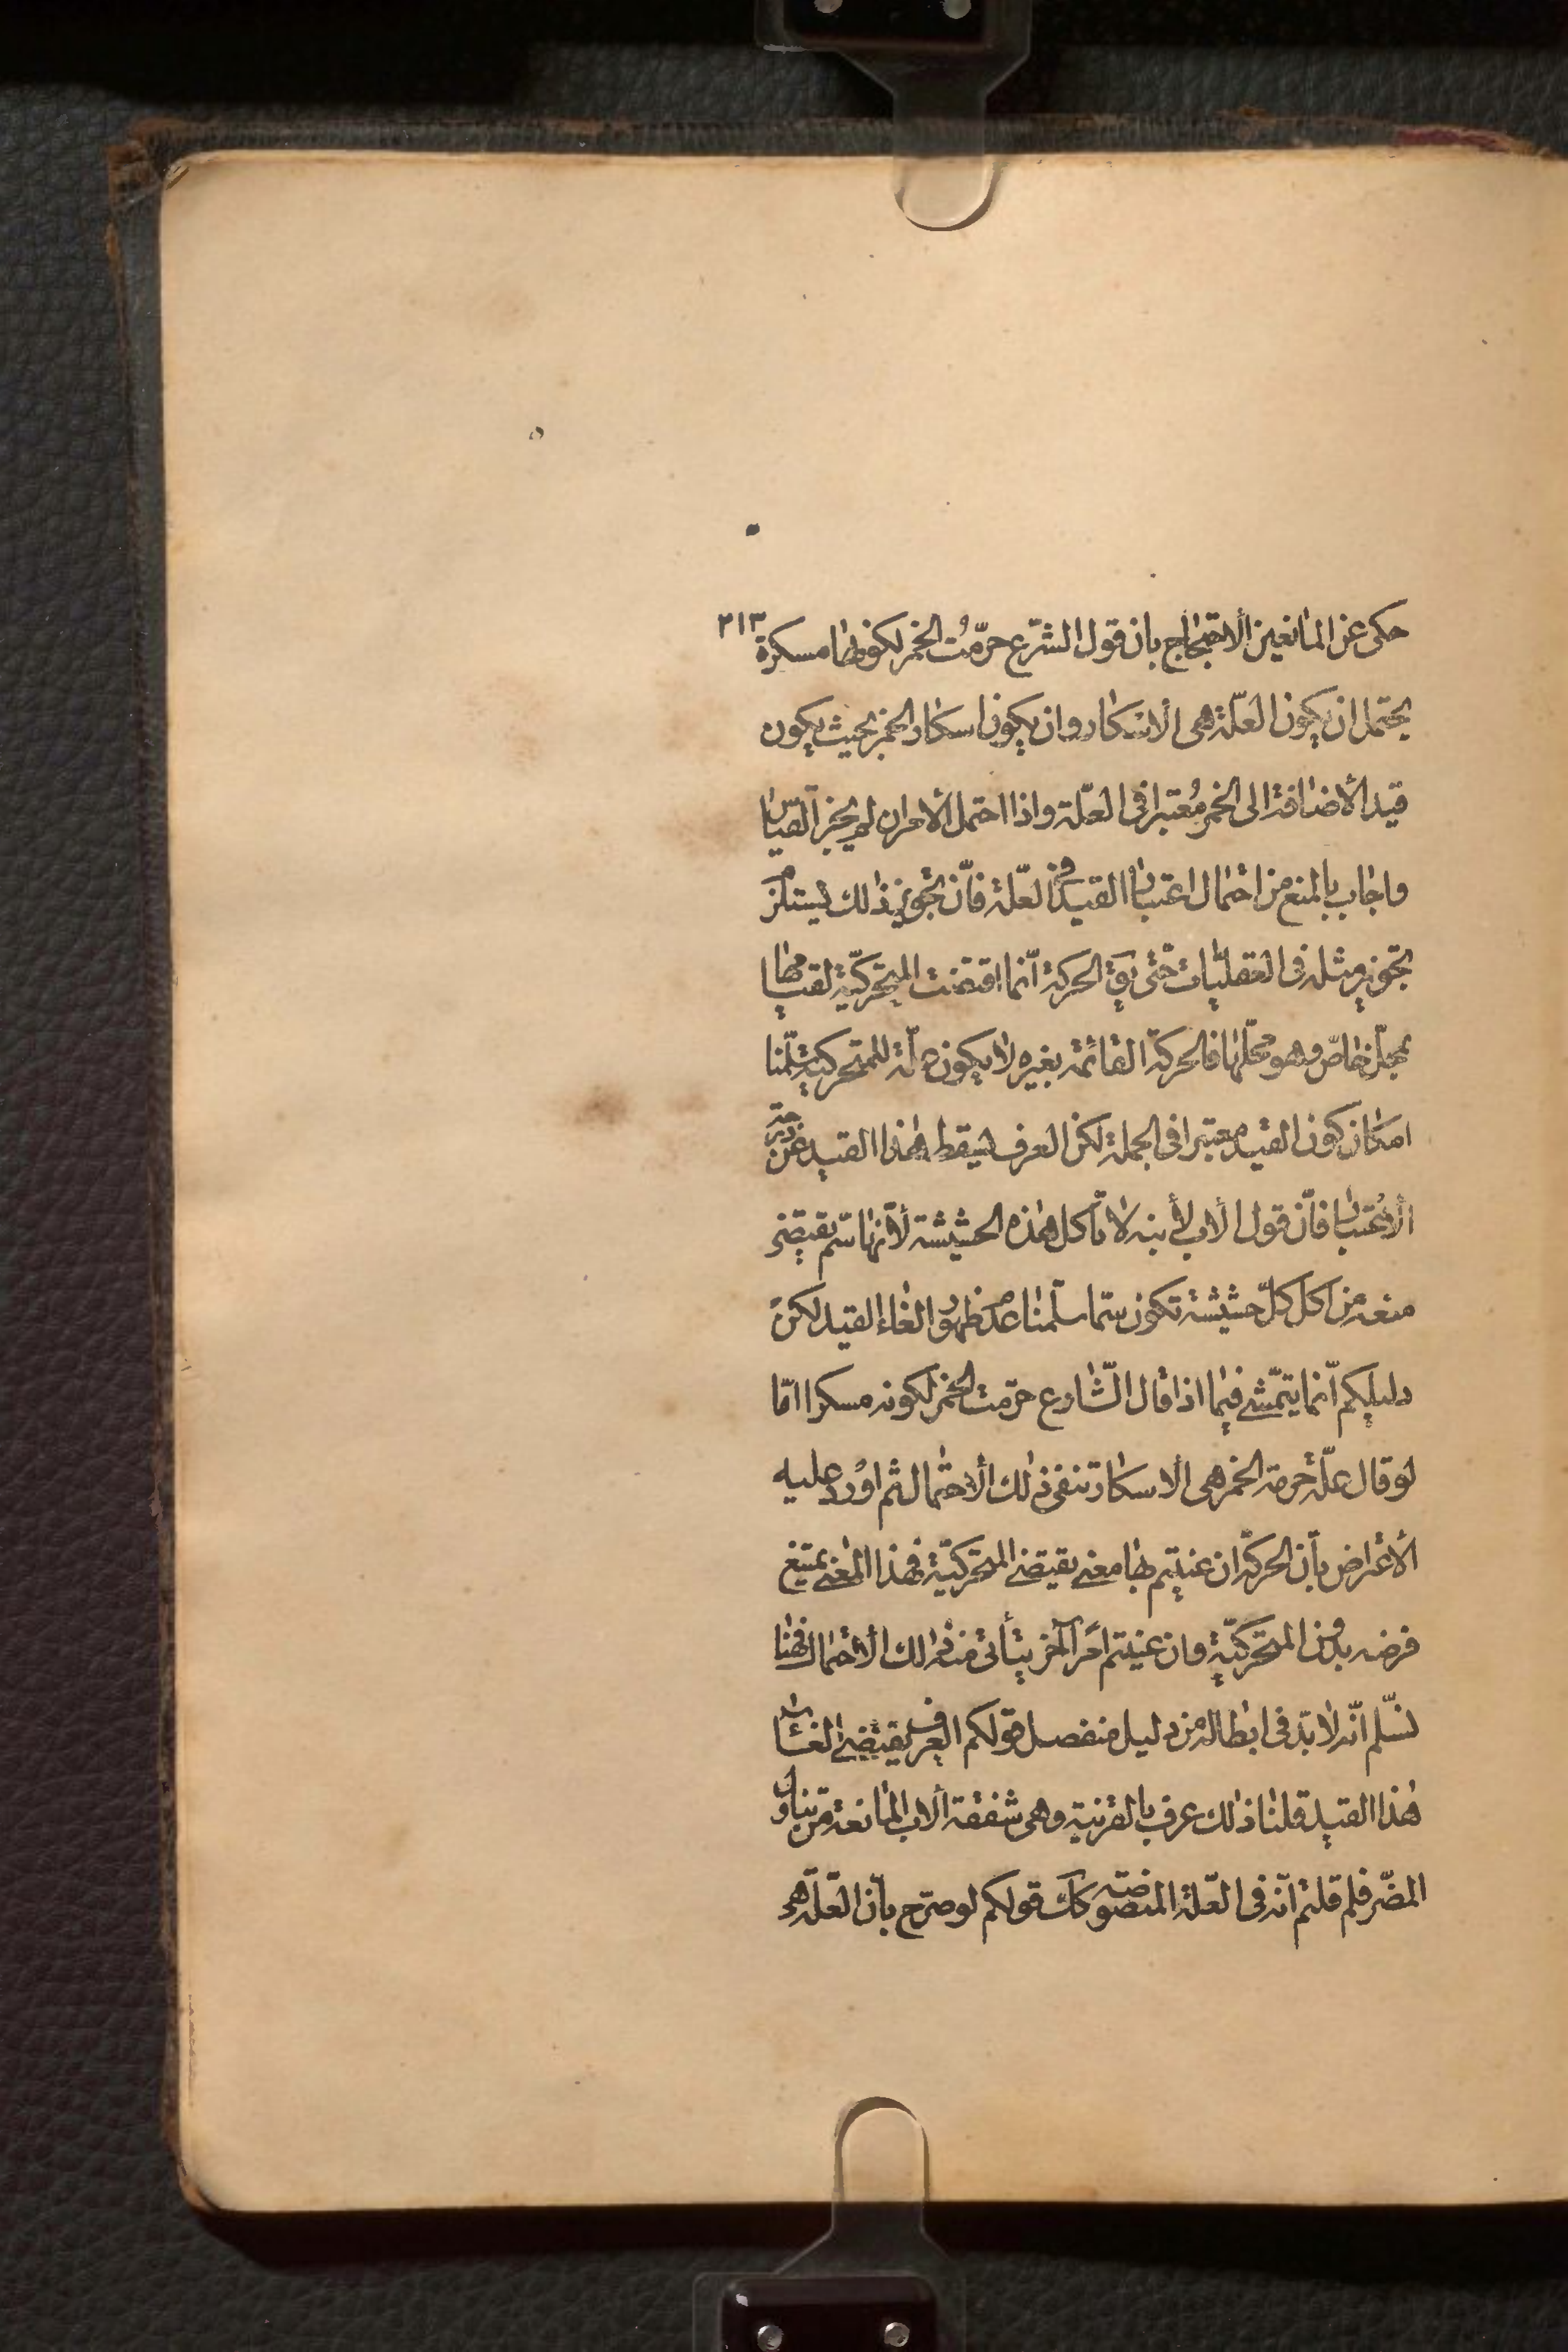 حكى عن المانعين الاحتجاج بان قول الشرع حرّمت الخمر لكونها مسكرة ٢١٣
يحتمل ان يكون العلّة هى الاسكار وان يكون اسكار الخمر بحيث يكون
قيد الأضافة الى الخمر مُعتبرا فى العلّة واذا احتمل الأمران لم يجز القياس
واجاب بالمنع من احتمال اعتبار القيد فى العلّة فانّ تجويز ذلك يستلزم
تجويز مثله فى العقليّات حتى يق الحركة انّما اقتضت المتحركيّة لقيامها
بمحلّ خاصّ وهو محلّها فالحركة القائمة بغيره لا يكون علّة للمتحركية سلّمنا
امكان كون القيد معتبرا فى الجملة لكن العرف يسقط هذا القيد عن درجة
الأعتبار فانّ قول الأب لأبنه لا تأكل هذه الحشيشة لأنّها سّم يقتضى
منعه من اكل كلّ حشيشة تكون سمّا سلّمنا عدم ظهور الغاء القيد لكن
دليلكم انّما يتمّشى فيما اذا قال الشّارع حرّمت الخمر لكونه مسكرا امّا
لو قال علّة حرمة الخمر هى الاسكار تنفى ذلك الأحتمال ثم اورد عليه
الأعتراض بأن الحركة ان عنيتم بها معنى يقيتضى المتحركيّة فهذا المعنى يمتنع
فرضه بدون المتحركيّة وان عنيتم امرا آخر يتأتى منه ذلك الأحتمال فهنا
نسّلم انّه لا بدّ فى ابطاله من دليل منفصل قولكم العرف يقيتضى الغاء
هذا القيد قلنا ذلك عرف بالقرنية وهى شفقة الاب المانعة من تناول
المضّر فلم قلتم انّه فى العّلة المنصوصة كك قولكم لو صرّح بأن العّلة هى